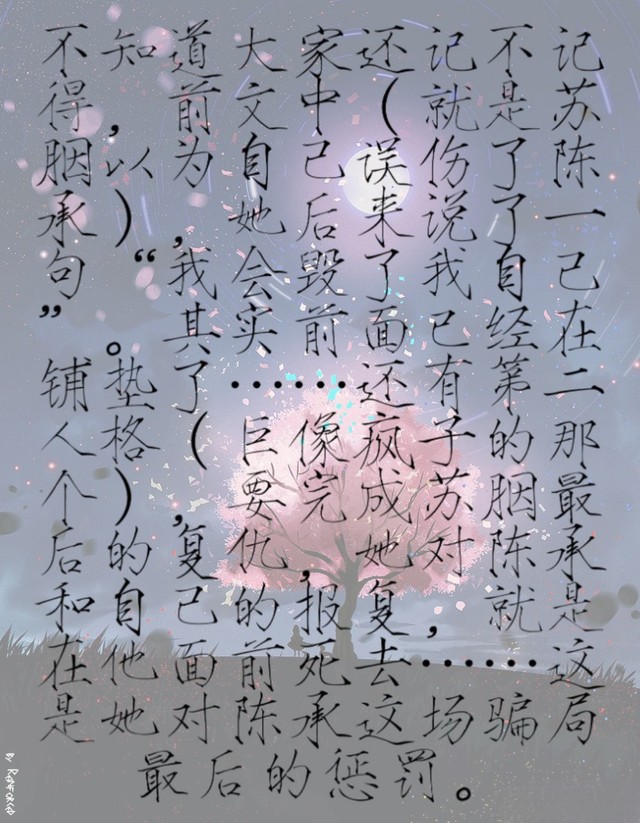 不知道大家还记不记
得，前文中（就是苏
胭以为自己误伤了陈
承），她后来说了一
句“我会毁了我自己
”。其实前面已经在
铺垫了……还有第二
人格（巨像疯子的那
个），要完成苏胭最
后的复仇，她对陈承
和自己的报复，就是
在他面前死去……这
是她对陈承这场骗局
最后的惩罚。